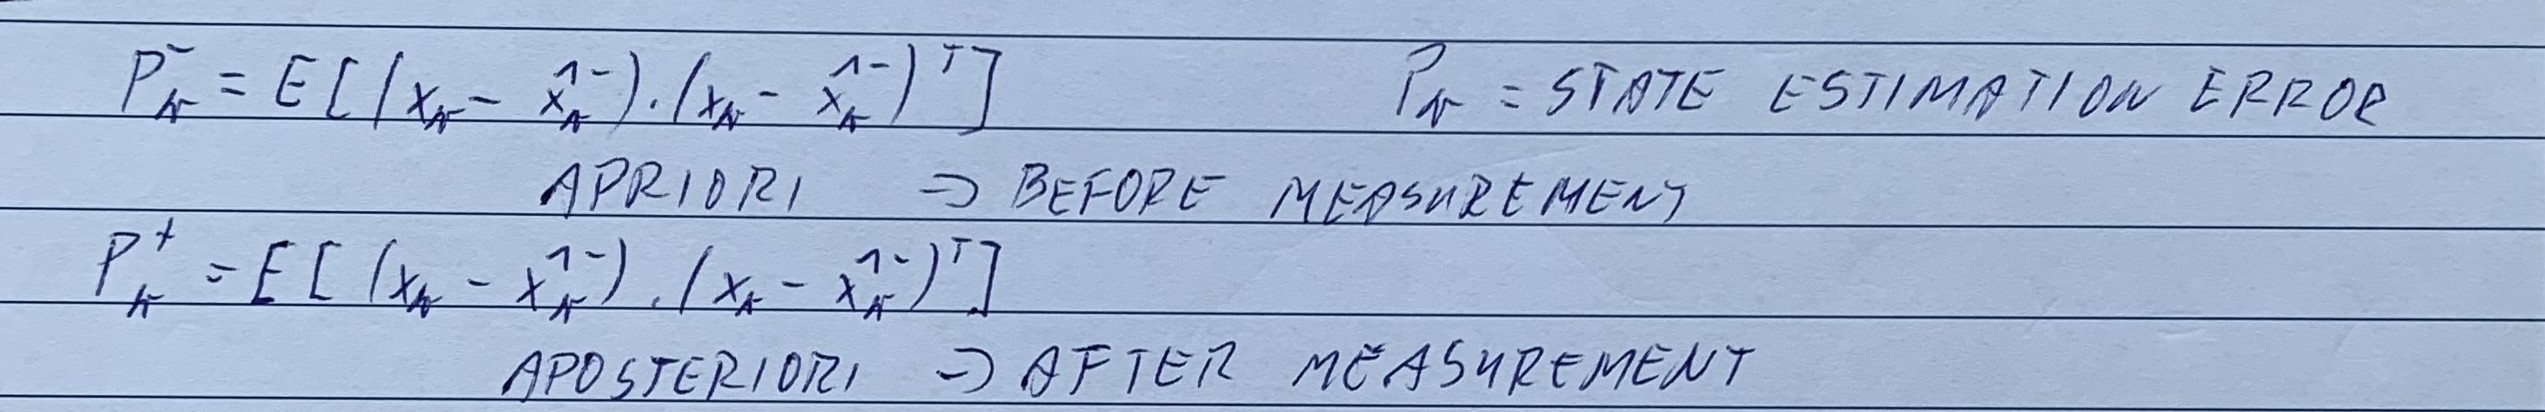 P_k^- = E[(x_k - x̂_k^-).(x_k - x̂_k^-)^T] P_k = STATE ESTIMATION ERROR
APRIORI ⇒ BEFORE MEASUREMENT
P_k^+ = E[(x_k - x̂_k^-).(x_k - x̂_k^-)^T]
APOSTERIORI ⇒ AFTER MEASUREMENT